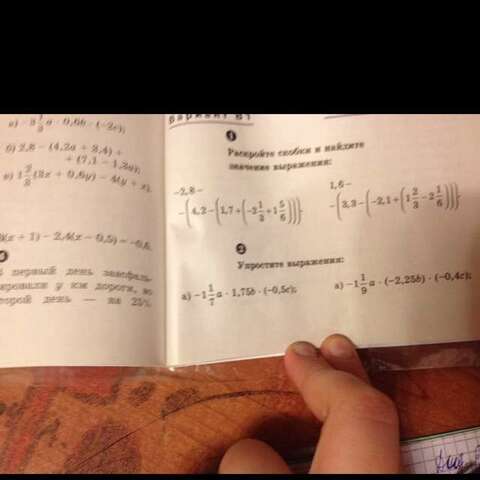 а) -3 1/3 a · 0,6b · (-2c);
б) 2,8 - (4,2a + 2,4) +
+ (7,1 - 1,2a);
в) 1 2/3 (3x + 0,6y) - 4(y + x).
(x + 1) - 2,4(x - 0,5) = -0,6.
первый день заасфаль-
ировали y км дороги, во
торой день — на 25%
Вариант Б1
1
Раскройте скобки и найдите
значение выражения:
-2,8 -
-(4,2 - (1,7 + (-2 1/3 + 1 5/6))).
1,6 -
-(3,3 - (-2,1 + (1 2/3 - 2 1/6))).
2
Упростите выражения:
а) -1 1/7 a · 1,75b · (-0,5c);
а) -1 1/9 a · (-2,25b) · (-0,4c);